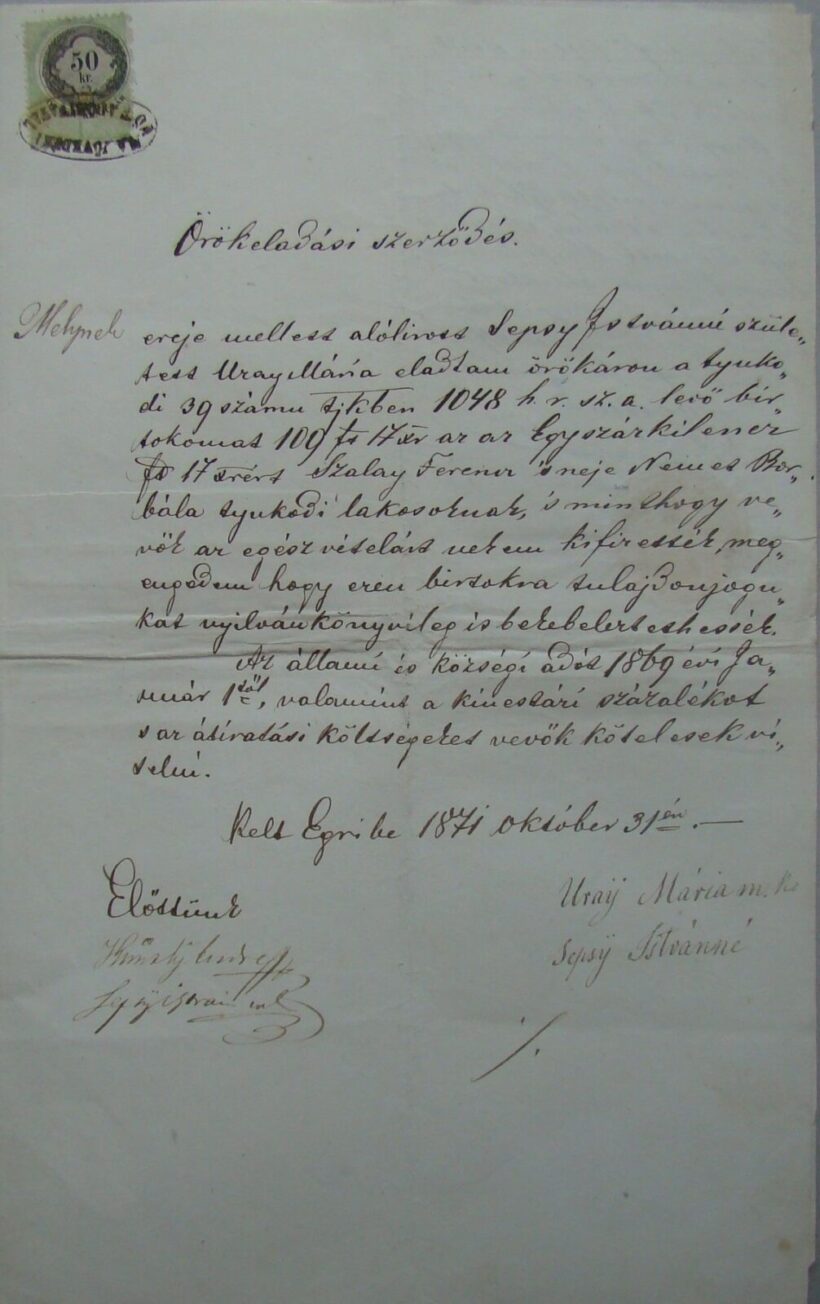 50
kr.
Örökeladási szerződés.
Melynek ereje mellett alólirott Sepsy Istvánné szüle„
tett Uray Mária eladtam örökáron a tyuko„
di 39 számu tjkben 1048 h. r. sz. a. levő bir„
tokomat 109 ft 17 xr az az Egyszázkilencz
ft 17 xrért Szalay Ferencz 's neje Nemet Bor„
bála tyukodi lakosoknak, 's minthogy ve„
vők az egész vételárt nekem kifizették, meg„
engedem hogy ezen birtokra tulajdonjogu„
kat nyilvánkönyvileg is bekebeleztethessék.
Az állami és községi adót 1869 évi Ja„
nuár 1től, valamint a kincstári százalékot
s az átiratási költségeket vevők kötelesek vi„
selni.
Kelt Egribe 1871 október 31én. —
Előttünk
Uraÿ Mária m. k.
Sepsÿ Istvánné